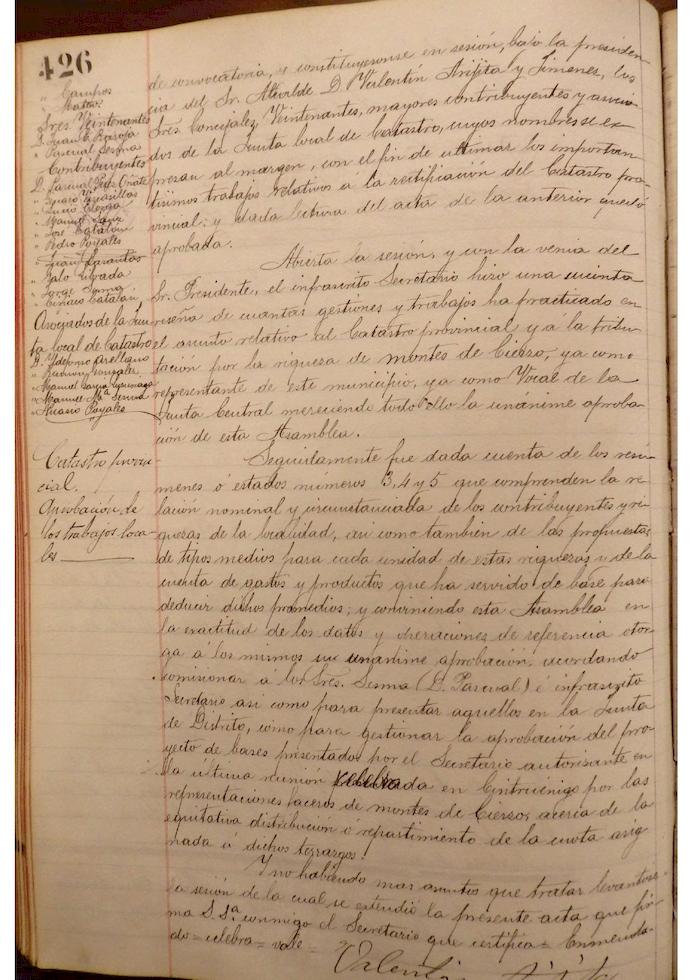 426
" Campos
" Mateo
Sres. Veintenantes
D. Juan C. Baroja
" Pascual Sesma
Contribuyentes
D. Pascual Pérez Oñate
" Ignacio
" Lucio
" Manuel Sanz
" José Catalán
" Pedro Poyales
" Juan
" Galo
" Jorge Sesma
" Ciriaco Catalán
Asociados de la Jun-
ta local de Catastro
D. Ildefonso Arellano
" González
" Manuel García
" Manuel Mª Sesma
" Nicasio Poyales
de convocatoria, y constituyeronse en sesión, bajo la presiden-
cia del Sr. Alcalde D. Valentín Arifita y Jimenes, los
Sres. Concejales, Veintenantes, mayores contribuyentes y asocia-
dos de la Junta local de Catastro, cuyos nombres se ex-
presan al margen, con el fin de ultimar los importan-
tísimos trabajos relativos á la rectificación del Catastro pro-
vincial; y dada lectura del acta de la anterior quedó
aprobada.
Abierta la sesión, y con la venia del
Sr. Presidente, el infrascrito Secretario hizo una sucinta
reseña de cuantas gestiones y trabajos ha practicado en
el asunto relativo al Catastro provincial y á la tribu-
tación por la riqueza de montes de Cierzo, ya como
representante de este municipio, ya como Vocal de la
Junta Central mereciendo todo ello la unánime aproba-
ción de esta Asamblea.
Catastro provin-
cial.
Aprobación de
los trabajos loca-
les
Seguidamente fue dada cuenta de los resú-
menes ó estados números 3, 4 y 5 que comprenden la re-
lación nominal y circunstanciada de los contribuyentes y ri-
quezas de la localidad, asi como tambien de las propuestas
de tipos medios para cada unidad de estas riquezas y de la
cuenta de gastos y productos que ha servido de base para
deducir dichos promedios; y conviniendo esta Asamblea en
la exactitud de los datos y operaciones de referencia otor-
ga á los mismos su unanime aprobación, acordando
comisionar á los Sres. Sesma (D. Pascual) é infrascrito
Secretario asi como para presentar aquellos en la Junta
de Distrito, como para gestionar la aprobación del pro-
yecto de bases presentados por el Secretario autorizante en
la última reunion celebrada en Cintruénigo por las
representaciones faceras de montes de Cierzo, acerca de la
equitativa distribución ó repartimiento de la cuota asig-
nada á dichos terrazgos.
Y no habiendo mas asuntos que tratar levantose
la sesión de la cual se estendió la presente acta que fir-
ma S. Sª. conmigo el Secretario que certifica = Enmenda-
do = celebra = vale
Valentín Arifita